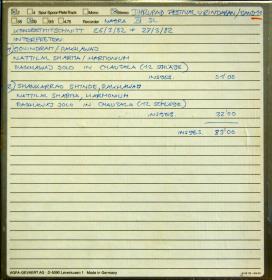 DHRUPAD FESTIVAL VRINDABAN/BAND
Recorder NAGRA IV SL
KONZERTMITSCHNITT 26/3/82 + 27/3/82
INTERPRETEN:
1) GOVINDRAM/PAKHAWAJ
NATTILAL SHARMA/HARMONIUM
PAKHAWAJ SOLO IN CHAUTALA (12 SCHLÄGE)
INSGES.
2) SHANKARRAO SHINDE, PAKHAWAJ
NATTILAL SHARMA, HARMONIUM
PAKHAWAJ SOLO IN CHAUTALA (12 SCHLÄGE)
INSGES. 32'00
INSGES. 83'00
AGFA-GEVAERT AG · D-5090 Leverkusen 1 · Made in Germany